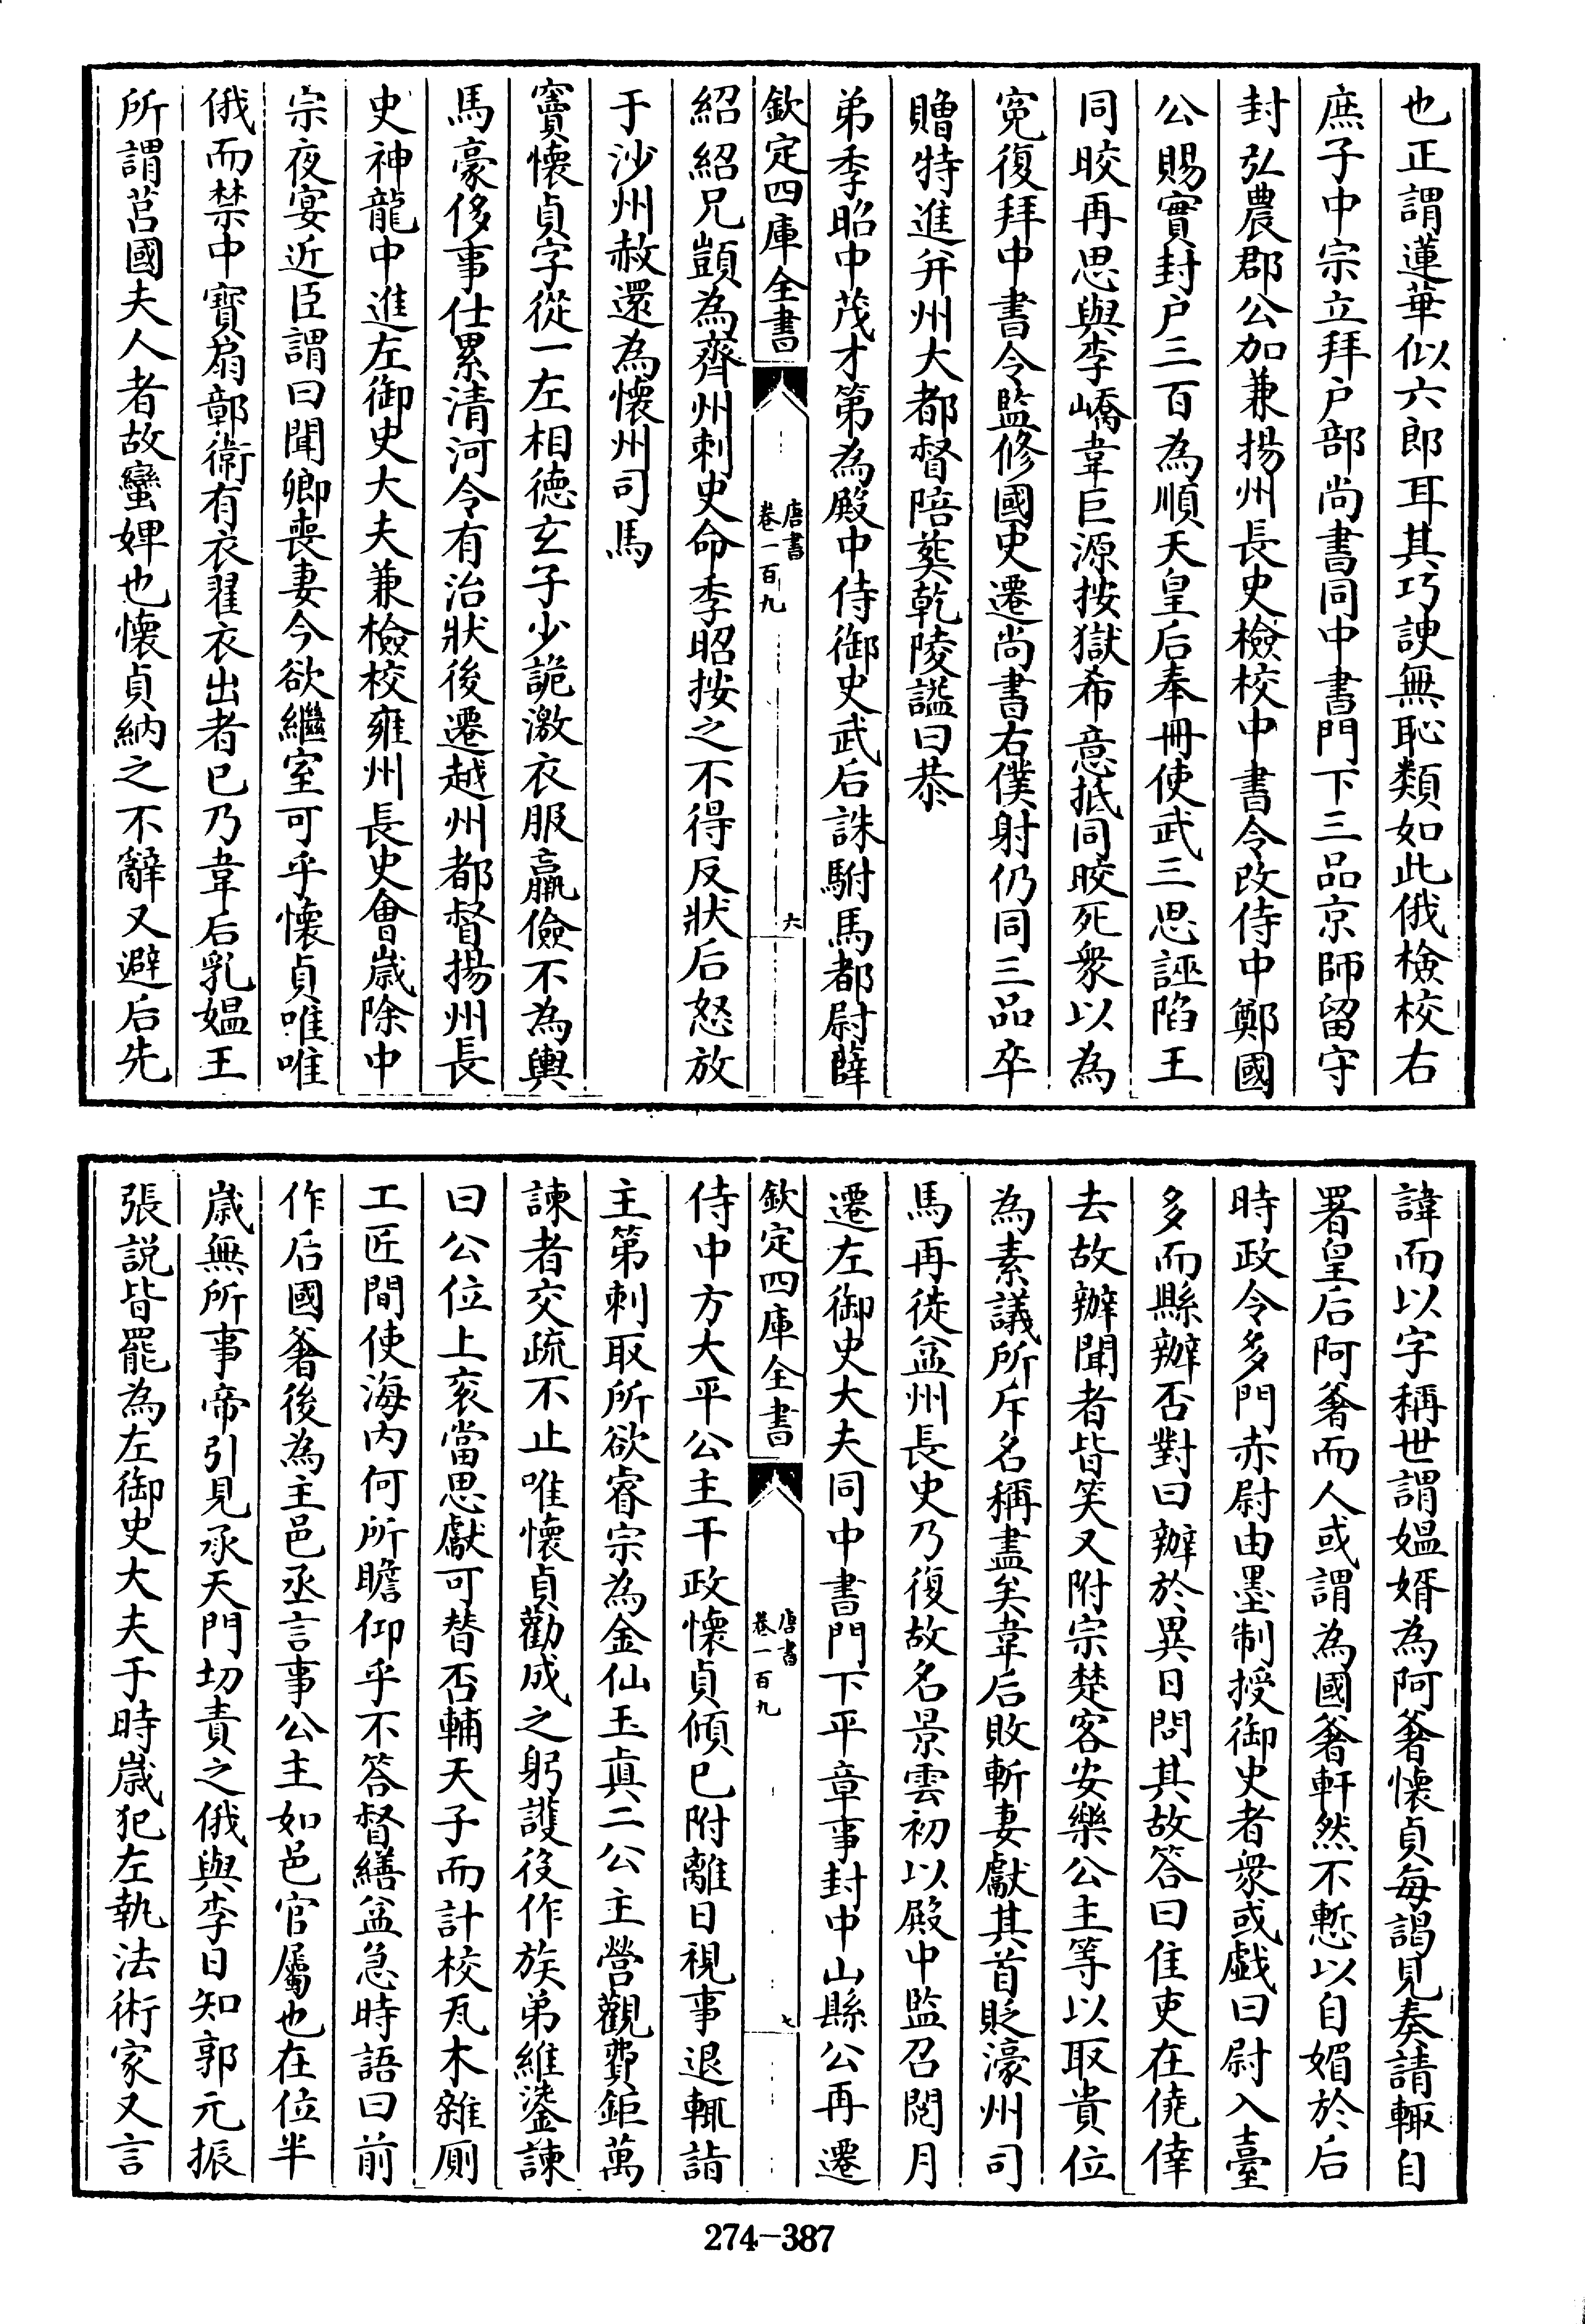 也正謂蓮華似六郎耳其巧諛無恥類如此俄檢校右
庶子中宗立拜户部尚書同中書門下三品京師留守
封弘農郡公加兼揚州長史檢校中書令改侍中鄭國
公賜實封户三百為順天皇后奉冊使武三思誣陷王
同晈再思與李嶠韋巨源按獄希意抵同晈死衆以為
寃復拜中書令監修國史遷尚書右僕射仍同三品卒
贈特進并州大都督陪葬乾陵謚曰恭
弟季昭中茂才第為殿中侍御史武后誅駙馬都尉薛
欽定四庫全書
唐書
卷一百九
六
紹紹兄顗為齊州刺史命季昭按之不得反狀后怒放
于沙州赦還為懷州司馬
竇懷貞字從一左相德玄子少詭激衣服羸儉不為輿
馬豪侈事仕累清河令有治狀後遷越州都督揚州長
史神龍中進左御史大夫兼檢校雍州長史會嵗除中
宗夜宴近臣謂曰聞卿喪妻今欲繼室可乎懷貞唯唯
俄而禁中寳扇鄣衞有衣翟衣出者已乃韋后乳媼王
所謂莒國夫人者故蠻婢也懷貞納之不辭又避后先
諱而以字稱世謂媼婿為阿奢懷貞每謁見奏請輒自
署皇后阿奢而人或謂為國奢軒然不慙以自媚於后
時政令多門赤尉由墨制授御史者衆或戲曰尉入臺
多而縣辦否對曰辦於異日問其故答曰佳吏在僥倖
去故辦聞者皆笑又附宗楚客安樂公主等以取貴位
為素議所斥名稱盡矣韋后敗斬妻獻其首貶濠州司
馬再徙益州長史乃復故名景雲初以殿中監召閲月
遷左御史大夫同中書門下平章事封中山縣公再遷
欽定四庫全書
唐書
卷一百九
七
侍中方大平公主干政懷貞傾已附離日視事退輒詣
主第刺取所欲睿宗為金仙玉真二公主營觀費鉅萬
諫者交疏不止唯懷貞勸成之躬護役作族弟維鍌諫
曰公位上衮當思獻可替否輔天子而計校瓦木雜厠
工匠間使海内何所瞻仰乎不答督繕益急時語曰前
作后國奢後為主邑丞言事公主如邑官屬也在位半
嵗無所事帝引見承天門切責之俄與李日知郭元振
張説皆罷為左御史大夫于時嵗犯左執法術家又言
274-387